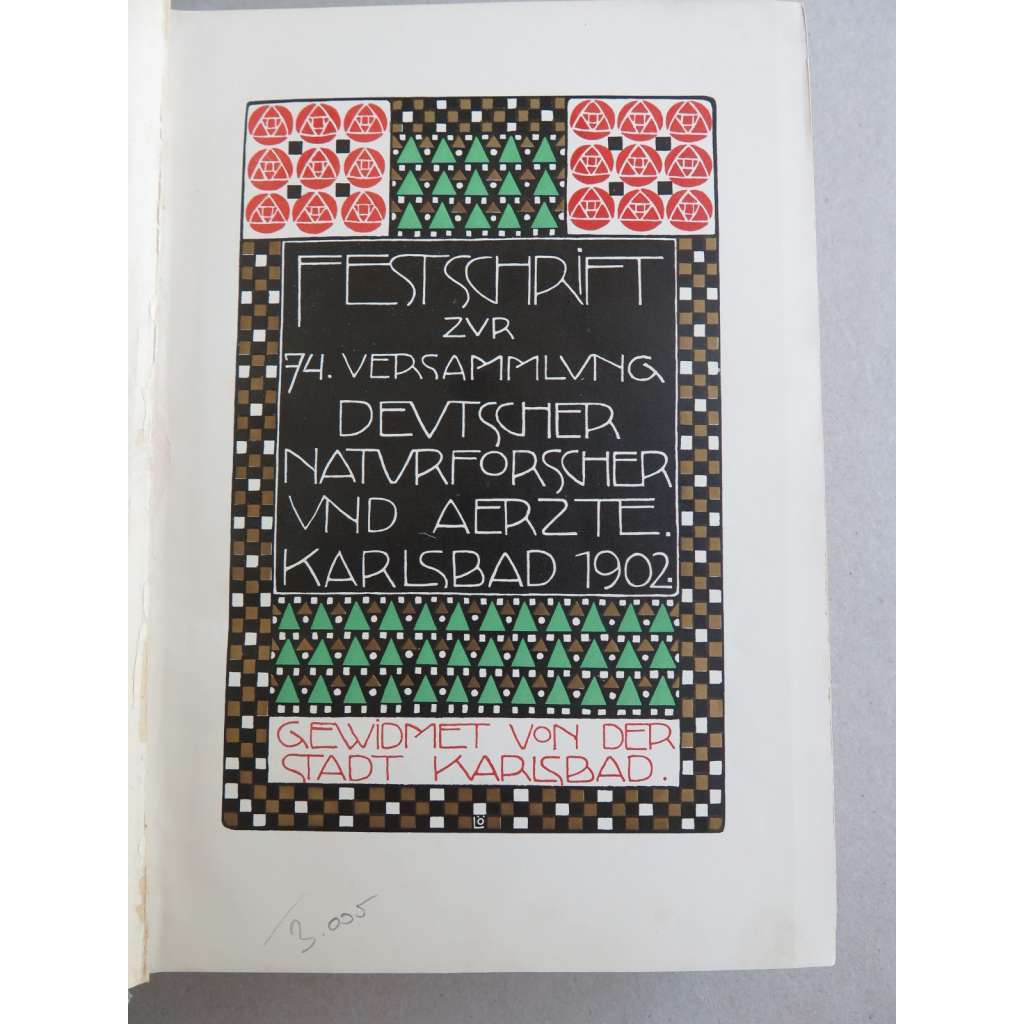 FESTSCHRIFT
ZVR
74. VERSAMMLVNG
DEVTSCHER
NATVRFORSCHER
VND AERZTE.
KARLSBAD 1902.
GEWIDMET VON DER
STADT KARLSBAD.
LÖ
3.005